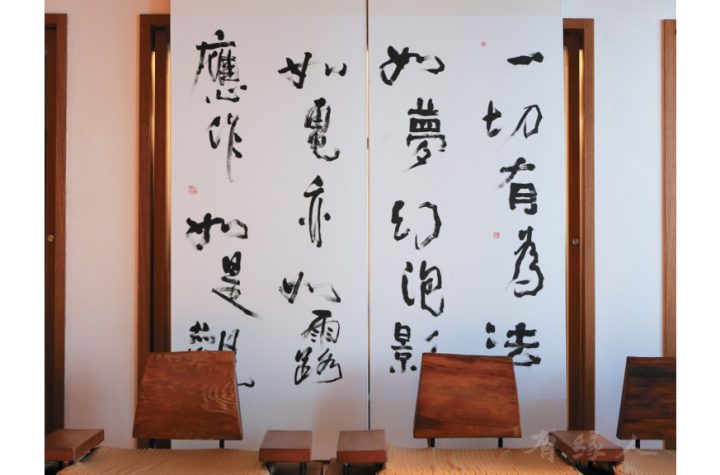 一切有為法
如夢幻泡影
如電亦如露
應作如是觀
有緣人